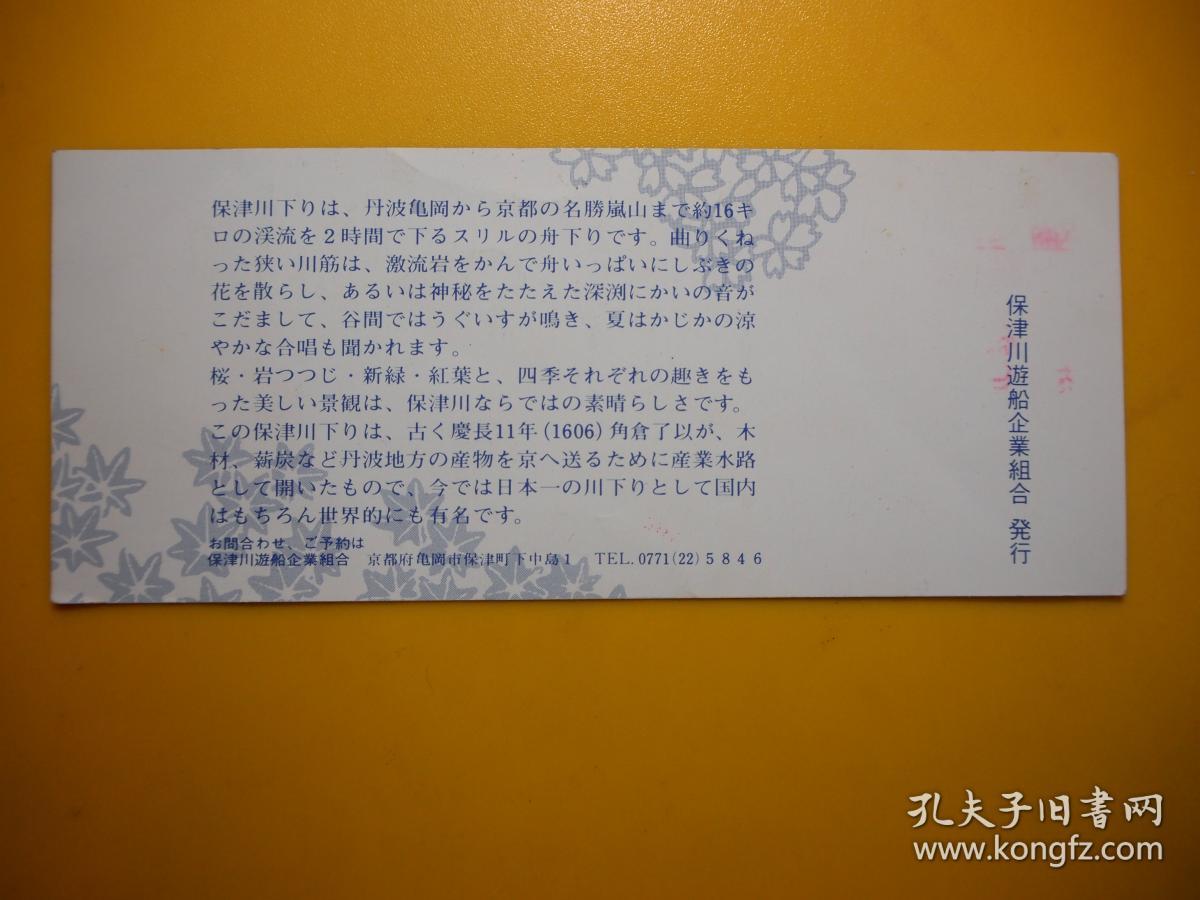 保津川下りは、丹波亀岡から京都の名勝嵐山まで約16キ
ロの渓流を２時間で下るスリルの舟下りです。曲りくね
った狭い川筋は、激流岩をかんで舟いっぱいにしぶきの
花を散らし、あるいは神秘をたたえた深渕にかいの音が
こだまして、谷間ではうぐいすが鳴き、夏はかじかの涼
やかな合唱も聞かれます。
桜・岩つつじ・新緑・紅葉と、四季それぞれの趣きをも
った美しい景観は、保津川ならではの素晴らしさです。
この保津川下りは、古く慶長11年(1606)角倉了以が、木
材、薪炭など丹波地方の産物を京へ送るために産業水路
として開いたもので、今では日本一の川下りとして国内
はもちろん世界的にも有名です。
お問合わせ、ご予約は
保津川遊船企業組合 京都府亀岡市保津町下中島1 TEL.0771(22)5846
保津川遊船企業組合 発行
孔夫子旧书网
www.kongfz.com